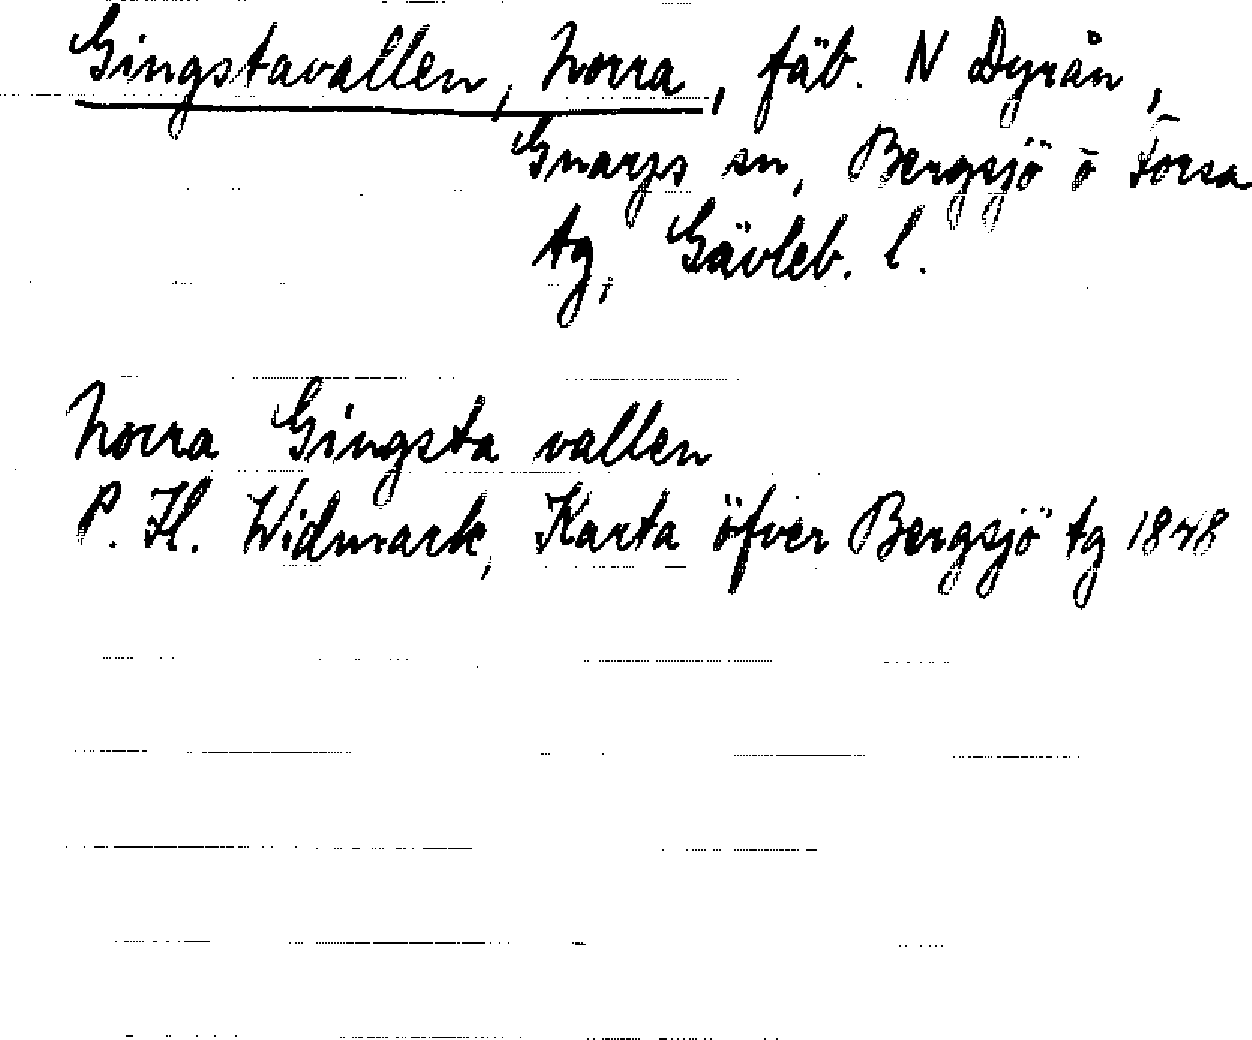 Gingstavallen, Norra, fäb. N Dyrån,
Gnarps sn, Bergsjö o Forsa
tg, Gävleb. l.
Norra Gingsta vallen
P. H. Widmark, Karta öfver Bergsjö tg 1848